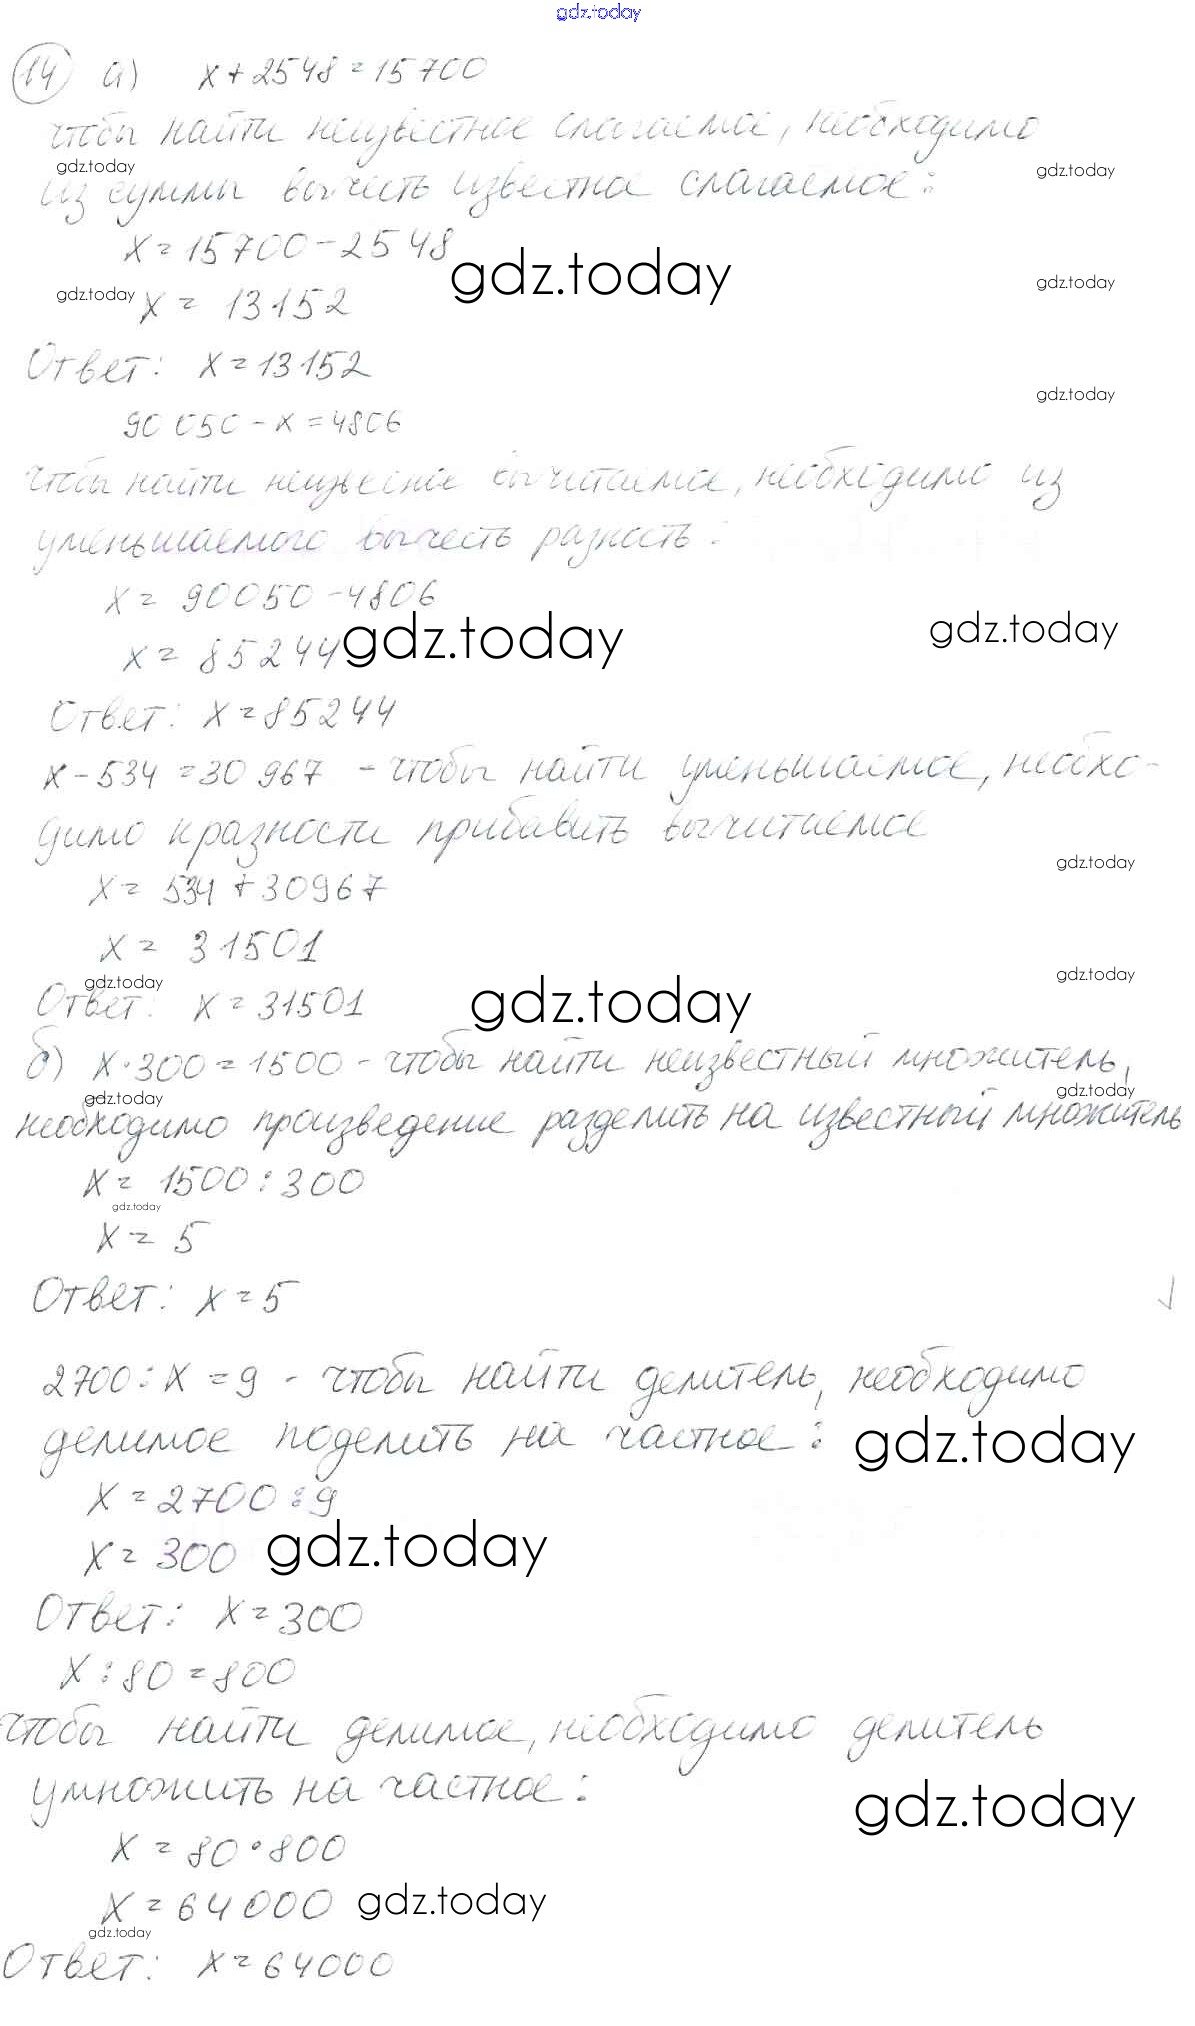 gdz.today
14 а) x+2548=15700
чтобы найти неизвестное слагаемое, необходимо
gdz.today gdz.today
из суммы вычесть известное слагаемое:
x=15700-2548
gdz.today
gdz.today x= 13152 gdz.today
Ответ: x=13152
gdz.today
90 050-x=4806
чтобы найти неизвесное вычитаемое, необходимо из
уменьшаемого вычесть разность:
x= 90050-4806
x= 85244 gdz.today gdz.today
Ответ: x=85244
x-534=30 967 - чтобы найти уменьшаемое, необхо-
димо к разности прибавить вычитаемое
gdz.today
x= 534+30967
x= 31501
gdz.today gdz.today
Ответ: x=31501 gdz.today
б) x·300=1500 - чтобы найти неизвестный множитель,
gdz.today gdz.today
необходимо произведение разделить на известный множитель
x= 1500:300
gdz.today
x= 5
Ответ: x=5
2700:x=9 - чтобы найти делитель, необходимо
делимое поделить на частное: gdz.today
x=2700:9
x=300 gdz.today
Ответ: x=300
x:80=800
чтобы найти делимое, необходимо делитель
умножить на частное: gdz.today
x=80·800
x=64000 gdz.today
gdz.today
Ответ: x=64000